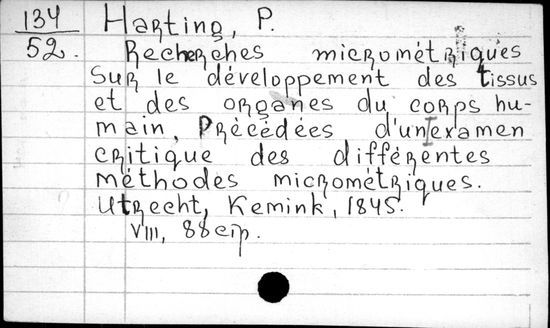 134 Harting, P.
52. Recherches micrométriques
sur le développement des tissus
et des organes du corps hu-
main, Précédées d'un examen
critique des différentes
méthodes micrométriques.
Utrecht, Kemink, 1845.
VIII, 88 стр.